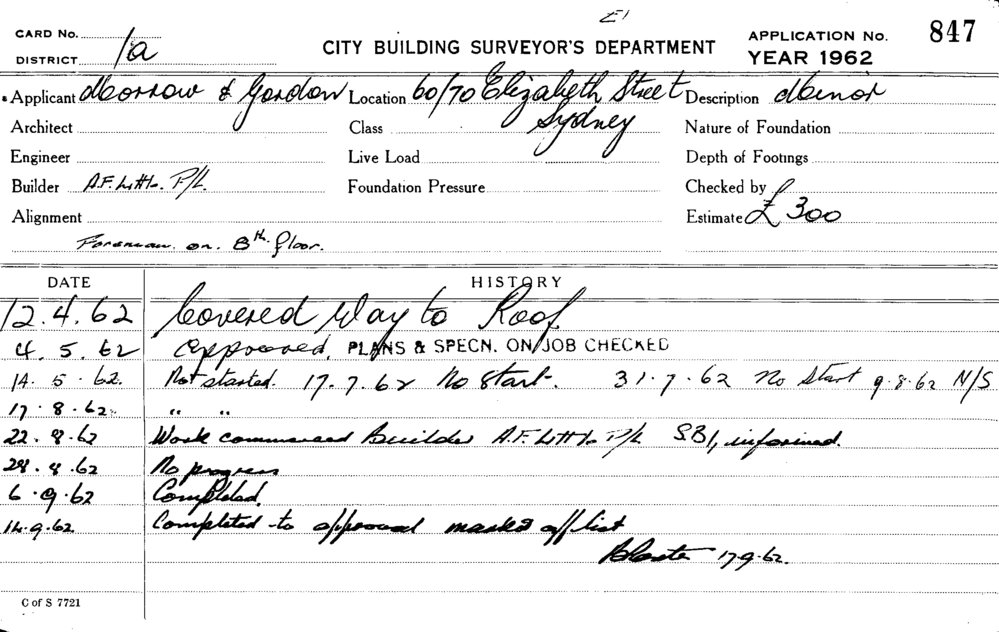 E1
CARD No.
DISTRICT 1a
CITY BUILDING SURVEYOR'S DEPARTMENT
APPLICATION No. 847
YEAR 1962
Applicant Morrow & Gordon Location 60/70 Elizabeth Street Sydney Description Minor
Architect Class Nature of Foundation
Engineer Live Load Depth of Footings
Builder A.F. Little P/L. Foundation Pressure Checked by
Alignment Estimate £ 300
Foreman. on. 8th. floor.
DATE HISTORY
12.4.62 Covered Way to Roof
4.5.62 Approved, PLANS & SPECN. ON JOB CHECKED
14.5.62. Not started. 17.7.62 No Start. 31.7.62 No Start 9.8.62 N/S
17.8.62. " "
22.8.62 Work commenced Builder A.F. Little P/L SB1, informed.
28.8.62 No progress
6.9.62 Completed.
14.9.62. Completed to approval marked off list
17.9.62.
C of S 7721